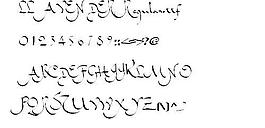 LLAVENDER Regular.ttf
0123456789:;<=>?@
ABCDEFGHIJKLMNO
PQRSTUVWXYZ[\]^_